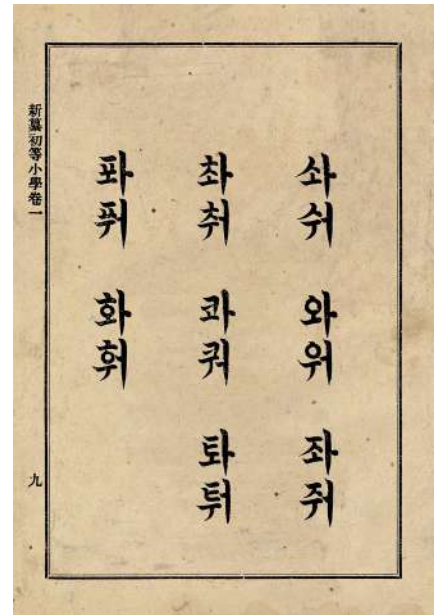 솨숴 와워 좌줘
촤춰 콰쿼 톼퉈
퐈풔 화훠
新纂初等小學卷一
九